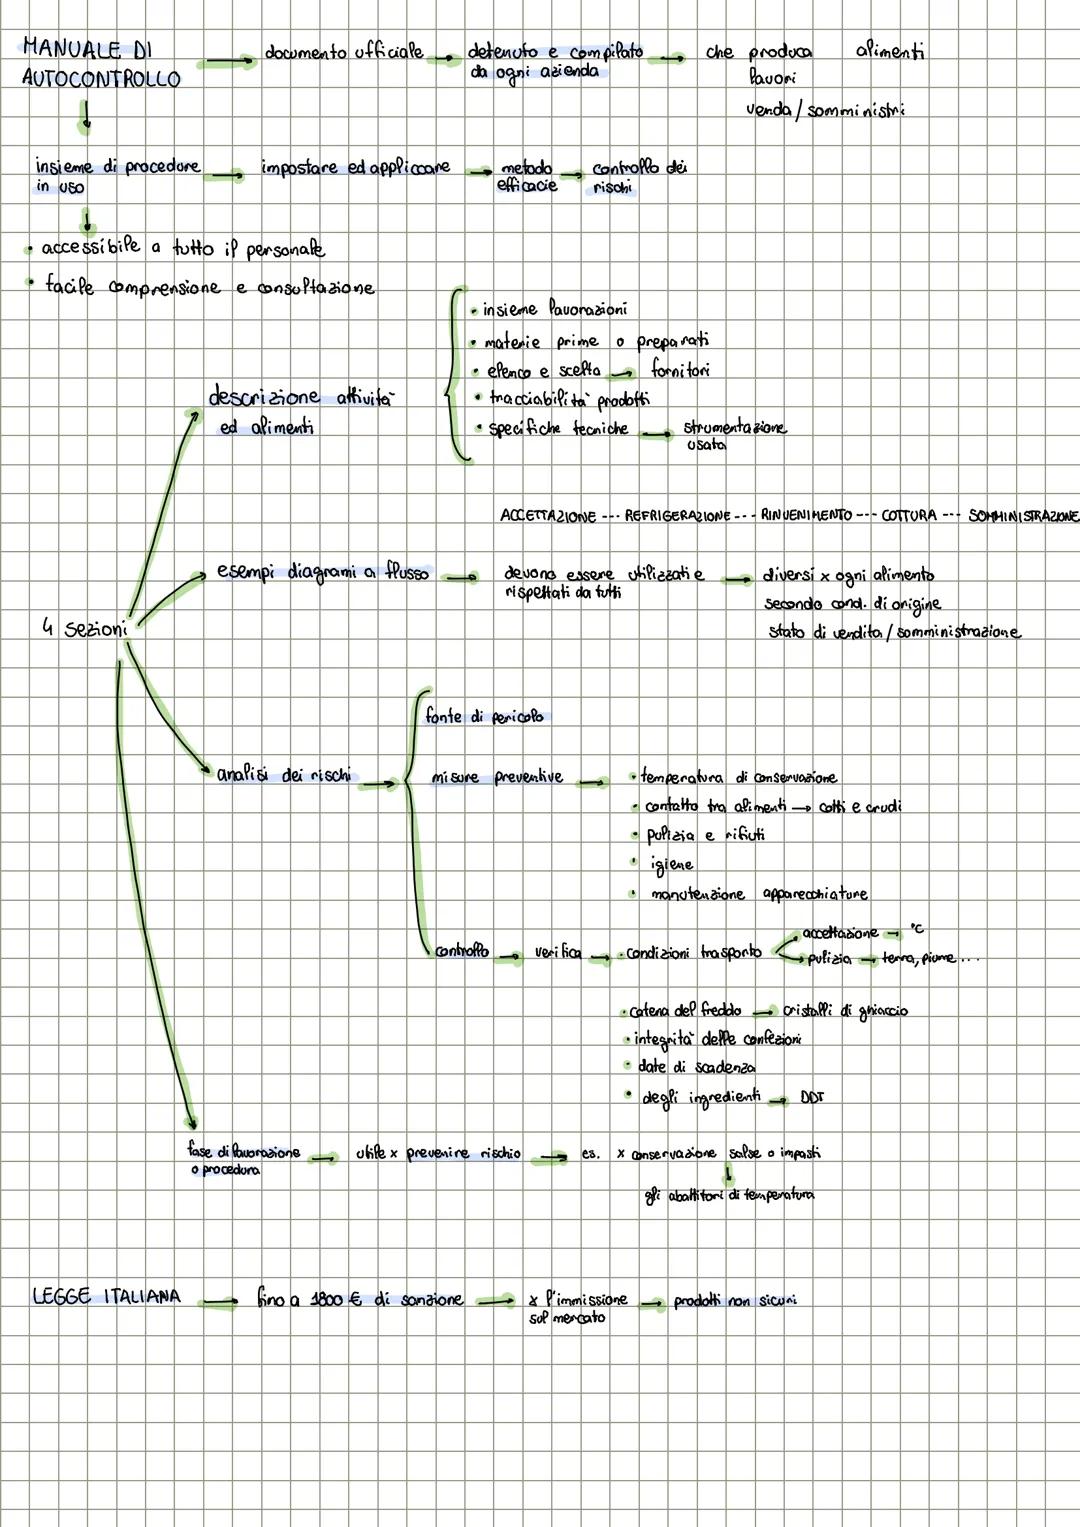 MANUALE DI AUTOCONTROLLO → documento ufficiale → detenuto e compilato da ogni azienda → che produca alimenti
lavori
venda / somministri
insieme di procedure in uso → impostare ed appliccare → metodo efficacie → controllo dei rischi
• accessibile a tutto il personale
• facile comprensione e consultazione
4 sezioni
descrizione attività ed alimenti
• insieme lavorazioni
• materie prime o preparati
• elenco e scelta → fornitori
• tracciabilità prodotti
• specifiche tecniche → strumentazione usata
ACCETTAZIONE --- REFRIGERAZIONE --- RINVENIMENTO --- COTTURA --- SOMMINISTRAZIONE
esempi diagrami a flusso → devono essere utilizzati e rispettati da tutti → diversi x ogni alimento
secondo cond. di origine
stato di vendita / somministrazione
analisi dei rischi →
fonte di pericolo
misure preventive → • temperatura di conservazione
• contatto tra alimenti → cotti e crudi
• pulizia e rifiuti
• igiene
• manutenzione apparecchiature
controllo → verifica → • condizioni trasporto
accettazione → °C
pulizia → terra, piume ...
• catena del freddo → cristalli di ghiaccio
• integrità delle confezioni
• date di scadenza
• degli ingredienti → DDT
fase di lavorazione o procedura → utile x prevenire rischio → es. x conservazione salse o impasti
↓
gli abattitori di temperatura
LEGGE ITALIANA → fino a 1800 € di sanzione → x l'immissione sul mercato → prodotti non sicuri